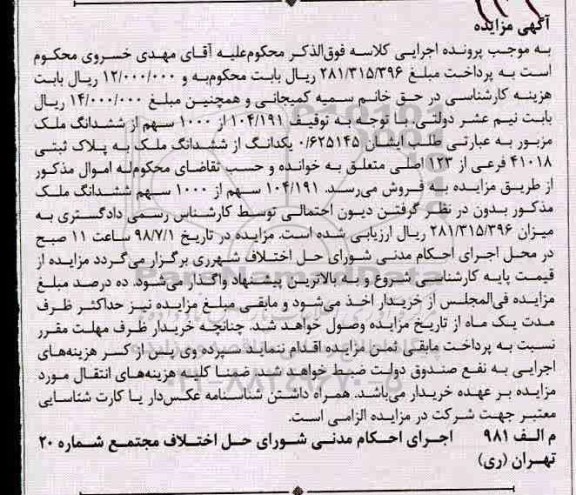 آگهی مزایده
به موجب پرونده اجرایی کلاسه فوق‌الذکر محکوم‌علیه آقای مهدی خسروی محکوم
است به پرداخت مبلغ ۲۸۱/۳۱۵/۳۹۶ ریال بابت محکوم‌به و ۱۲/۰۰۰/۰۰۰ ریال بابت
هزینه کارشناسی در حق خانم سمیه کمیجانی و همچنین مبلغ ۱۴/۰۰۰/۰۰۰ ریال
بابت نیم عشر دولتی با توجه به توقیف ۱۰۴/۱۹۱ از ۱۰۰۰ سهم از ششدانگ ملک
مزبور به عبارتی طلب ایشان ۰/۶۲۵۱۴۵ یکدانگ از ششدانگ ملک به پلاک ثبتی
۴۱۰۱۸ فرعی از ۱۲۳ اصلی متعلق به خوانده و حسب تقاضای محکوم‌له اموال مذکور
از طریق مزایده به فروش می‌رسد. ۱۰۴/۱۹۱ سهم از ۱۰۰۰ سهم ششدانگ ملک
مذکور بدون در نظر گرفتن دیون احتمالی توسط کارشناس رسمی دادگستری به
میزان ۲۸۱/۳۱۵/۳۹۶ ریال ارزیابی شده است. مزایده در تاریخ ۹۸/۷/۱ ساعت ۱۱ صبح
در محل اجرای احکام مدنی شورای حل اختلاف شهرری برگزار می‌گردد مزایده از
قیمت پایه کارشناسی شروع و به بالاترین پیشنهاد واگذار می‌شود. ده درصد مبلغ
مزایده فی‌المجلس از خریدار اخذ می‌شود و مابقی مبلغ مزایده نیز حداکثر ظرف
مدت یک ماه از تاریخ مزایده وصول خواهد شد. چنانچه خریدار ظرف مهلت مقرر
نسبت به پرداخت مابقی ثمن مزایده اقدام ننماید سپرده وی پس از کسر هزینه‌های
اجرایی به نفع صندوق دولت ضبط خواهد شد. ضمنا کلیه هزینه‌های انتقال مورد
مزایده بر عهده خریدار می‌باشد. همراه داشتن شناسنامه عکس‌دار یا کارت شناسایی
معتبر جهت شرکت در مزایده الزامی است.
م الف ۹۸۱ اجرای احکام مدنی شورای حل اختلاف مجتمع شماره ۲۰
تهران (ری)
ParsNamadData
۰۲۱-۸۸۳۴۹۶۷۰-۵